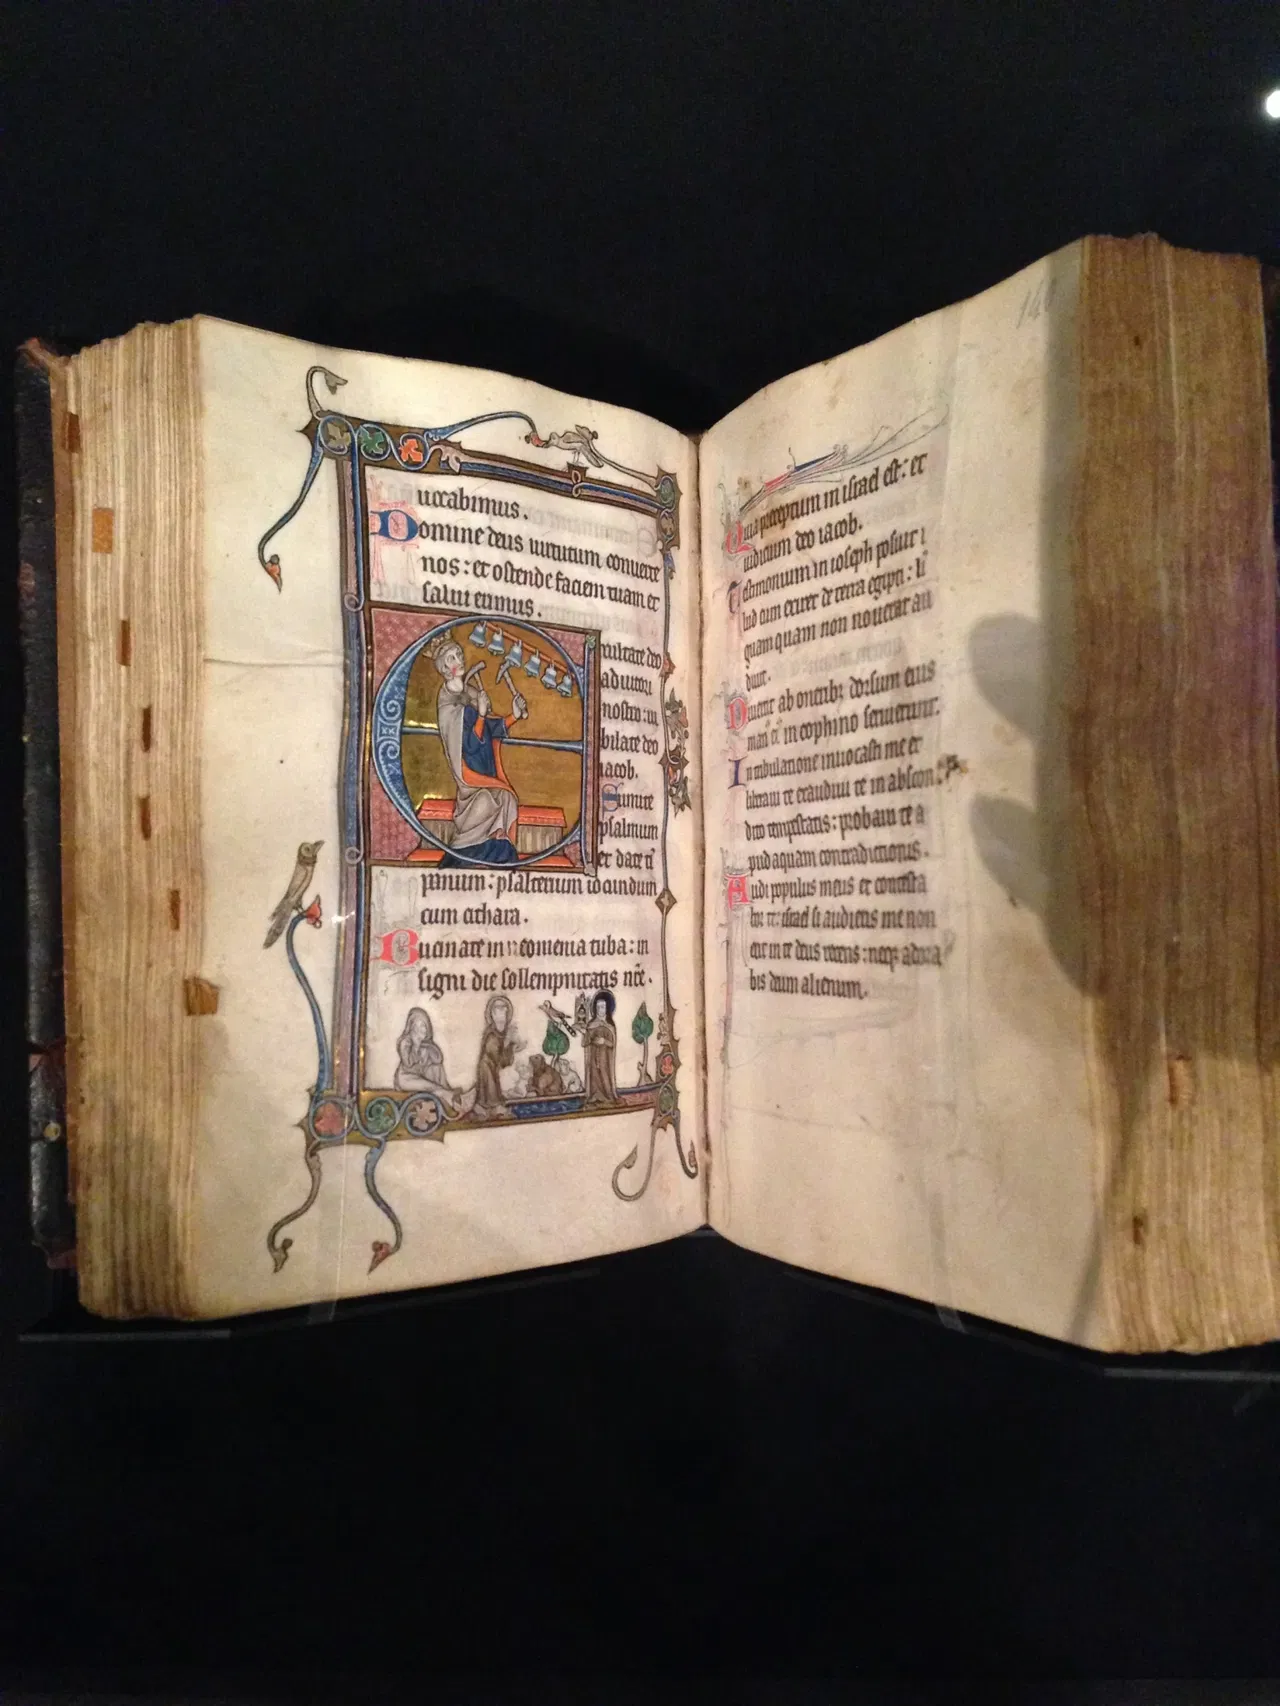 uocabimus.
Domine deus uirtutum conuerte
nos: et ostende faciem tuam et
salui erimus.
Exultate deo
adiutori
nostro: iu
bilate deo
iacob.
Sumite
psalmum
et date ti
panum: psalterium iocundum
cum cithara.
Bucinate in neomenia tuba: in
signi die sollempnitatis nr̄e.
140
Quia preceptum in israel est: et
iudicium deo iacob.
Testimonium in ioseph posuit i
lud cum exiret de terra egipti: li
guam quam non nouerat au
diuit.
Diuertit ab oneribꝫ dorsum eius
man᷒ ei᷒ in cophino seruierunt.
In tribulatione inuocasti me et
liberaui te exaudiui te in abscon
dito tempestatis: probaui te a
pud aquam contradictionis.
Audi populus meus et contesta
bor te: israel si audieris me non
erit in te deus recens: neqꝫ adora
bis deum alienum.